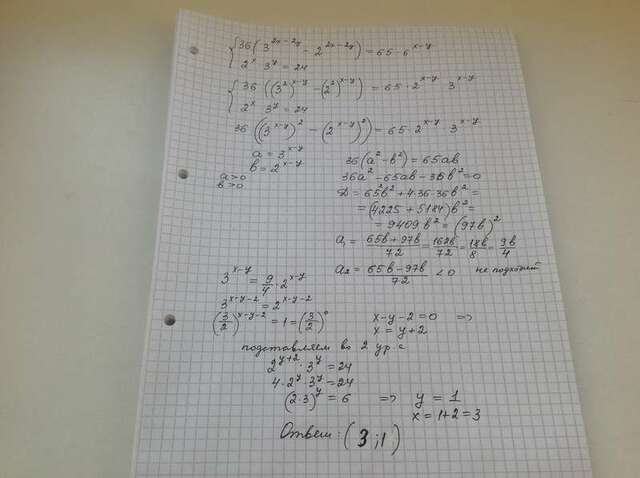 {36(3^{2x-2y} - 2^{2x-2y}) = 65·6^{x-y}
2^x 3^y = 24
{36((3^2)^{x-y} - (2^2)^{x-y}) = 65·2^{x-y} 3^{x-y}
2^x 3^y = 24
36((3^{x-y})^2 - (2^{x-y})^2) = 65·2^{x-y} 3^{x-y}
a = 3^{x-y}
b = 2^{x-y}
a>0
b>0
36(a^2 - b^2) = 65ab
36a^2 - 65ab - 36b^2 = 0
D = 65^2b^2 + 4·36·36b^2 =
= (4225 + 5184)b^2 =
= 9409b^2 = (97b)^2
a_1 = (65b+97b)/72 = 162b/72 = 18b/8 = 9b/4
a_2 = (65b-97b)/72 < 0 не подходит
3^{x-y} = 9/4 · 2^{x-y}
3^{x-y-2} = 2^{x-y-2}
(3/2)^{x-y-2} = 1 = (3/2)^0
x-y-2=0 =>
x = y+2
подставляем во 2 ур-е
2^{y+2} · 3^y = 24
4·2^y·3^y = 24
(2·3)^y = 6 => y = 1
x = 1+2 = 3
Ответ: (3;1)